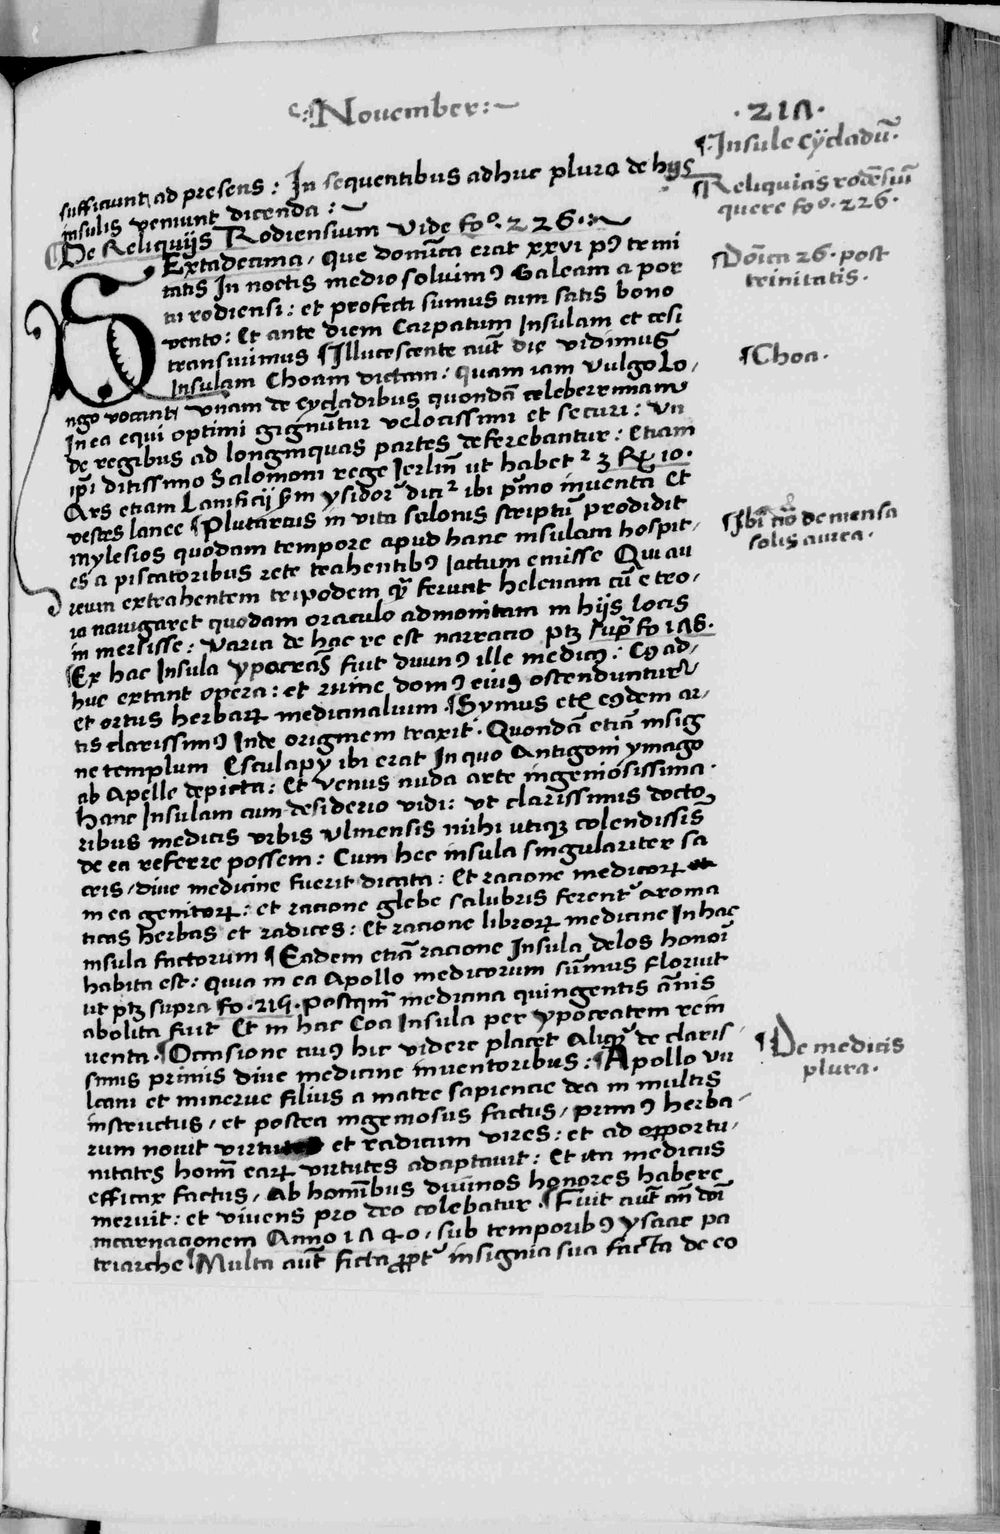 November:~
.217.
Insule cycladū.
sufficiunt ad presens: In sequentibus adhuc plura de hijs
insulis veniunt dicenda:~
Reliquias rodēsiū
quere fo. 226.
De Reliquijs Rodiensium vide fo. 226.~
Sextadecima, que domīca erat xxvi pꝰ trini
tatis In noctis medio soluimꝰ Galeam a por
tu rodiensi: et profecti sumus cum satis bono
Doīca 26. post
trinitatis.
vento: Et ante diem Carpatum Insulam et
transiuimus Illucescente aūt die vidimus
Insulam Choam dictam: quam iam vulgo Lo,
Choa.
ngo vocant, vnam de cycladibus quondā celeberrimam
In ea equi optimi gignūtur velocissimi et securi: vn
de regibus ad longinquas partes deferebantur: Etiam
ipi ditissimo Salomoni rege Ierlm̄ ut habet 3 R 10.
Ars etiam Lanificij ysidor dicit ibi pmo inuenta et
vestes lanee Plutarcus in vita solonis scriptū prodidit
Ibi de mensa
solis aurea.
mylesios quodam tempore apud hanc insulam hospit,
es a piscatoribus rete trahentibꝰ Iactum emisse Qui au
reum extrahentem tripodem ferunt helenam cū e tro,
ia nauigaret quodam oraculo admonitam in hijs locis
in mersisse: varia de hac re est narracio ptꝫ supͣ fo 178.
Ex hac Insula ypocras fuit diuinꝰ ille medicꝰ: Cꝰ ad,
huc extant opera: et ruine domꝰ eius ostenduntur
et ortus herbarꝝ medicinalium. Symus eodem ar,
tis clarissimꝰ Inde originem traxit. Quondā etiā insig
ne templum Esculapy ibi erat In quo Antigoni ymago
ab Apelle depicta: Et venus nuda arte ingeniosissima.
hanc Insulam cum desiderio vidi: ut clarissimis docto
ribus medicis vrbis vlmensis mihi utiqꝫ colendissis
de ea referre possem: Cum hec insula singulariter sa
cris, diue medicine fuerit dicata: Et racione medicorꝝ
in ea genitorꝝ: et racione glebe salubris ferentꝰ aroma
ticas herbas et radices: Et racione librorꝝ medicine In hac
insula factorum Eadem etiā racione Insula delos honoī
habita est: quia in ea Apollo medicorum sūmus floruit
ut ptꝫ supra fo. 215. Postqm̄ medicina quingentis ānis
abolita fuit Et in hac Coa Insula per ypocratem rein
uenta. Occasione cuiꝰ hic videre placet aliqͣ de claris,
De medicis
plura.
simis primis diue medicine inuentoribus: Apollo vu
lcani et minerue filius a matre sapiencie dea in multis
instructus, et postea ingeniosus factus, primꝰ herba,
rum nouit et radicum vires: et ad opportu,
nitates homī earꝝ virtutes adaptauit: Et ita medicus
efficax factus, ab homībus diuinos honores habere
meruit: et viuens pro deo colebatur. Fuit aūt ān doī
incarnacionem Anno 1840, sub temporibꝰ ysaac pa
triarche Multa aūt ficta ꝓpt insignia sua facta de eo